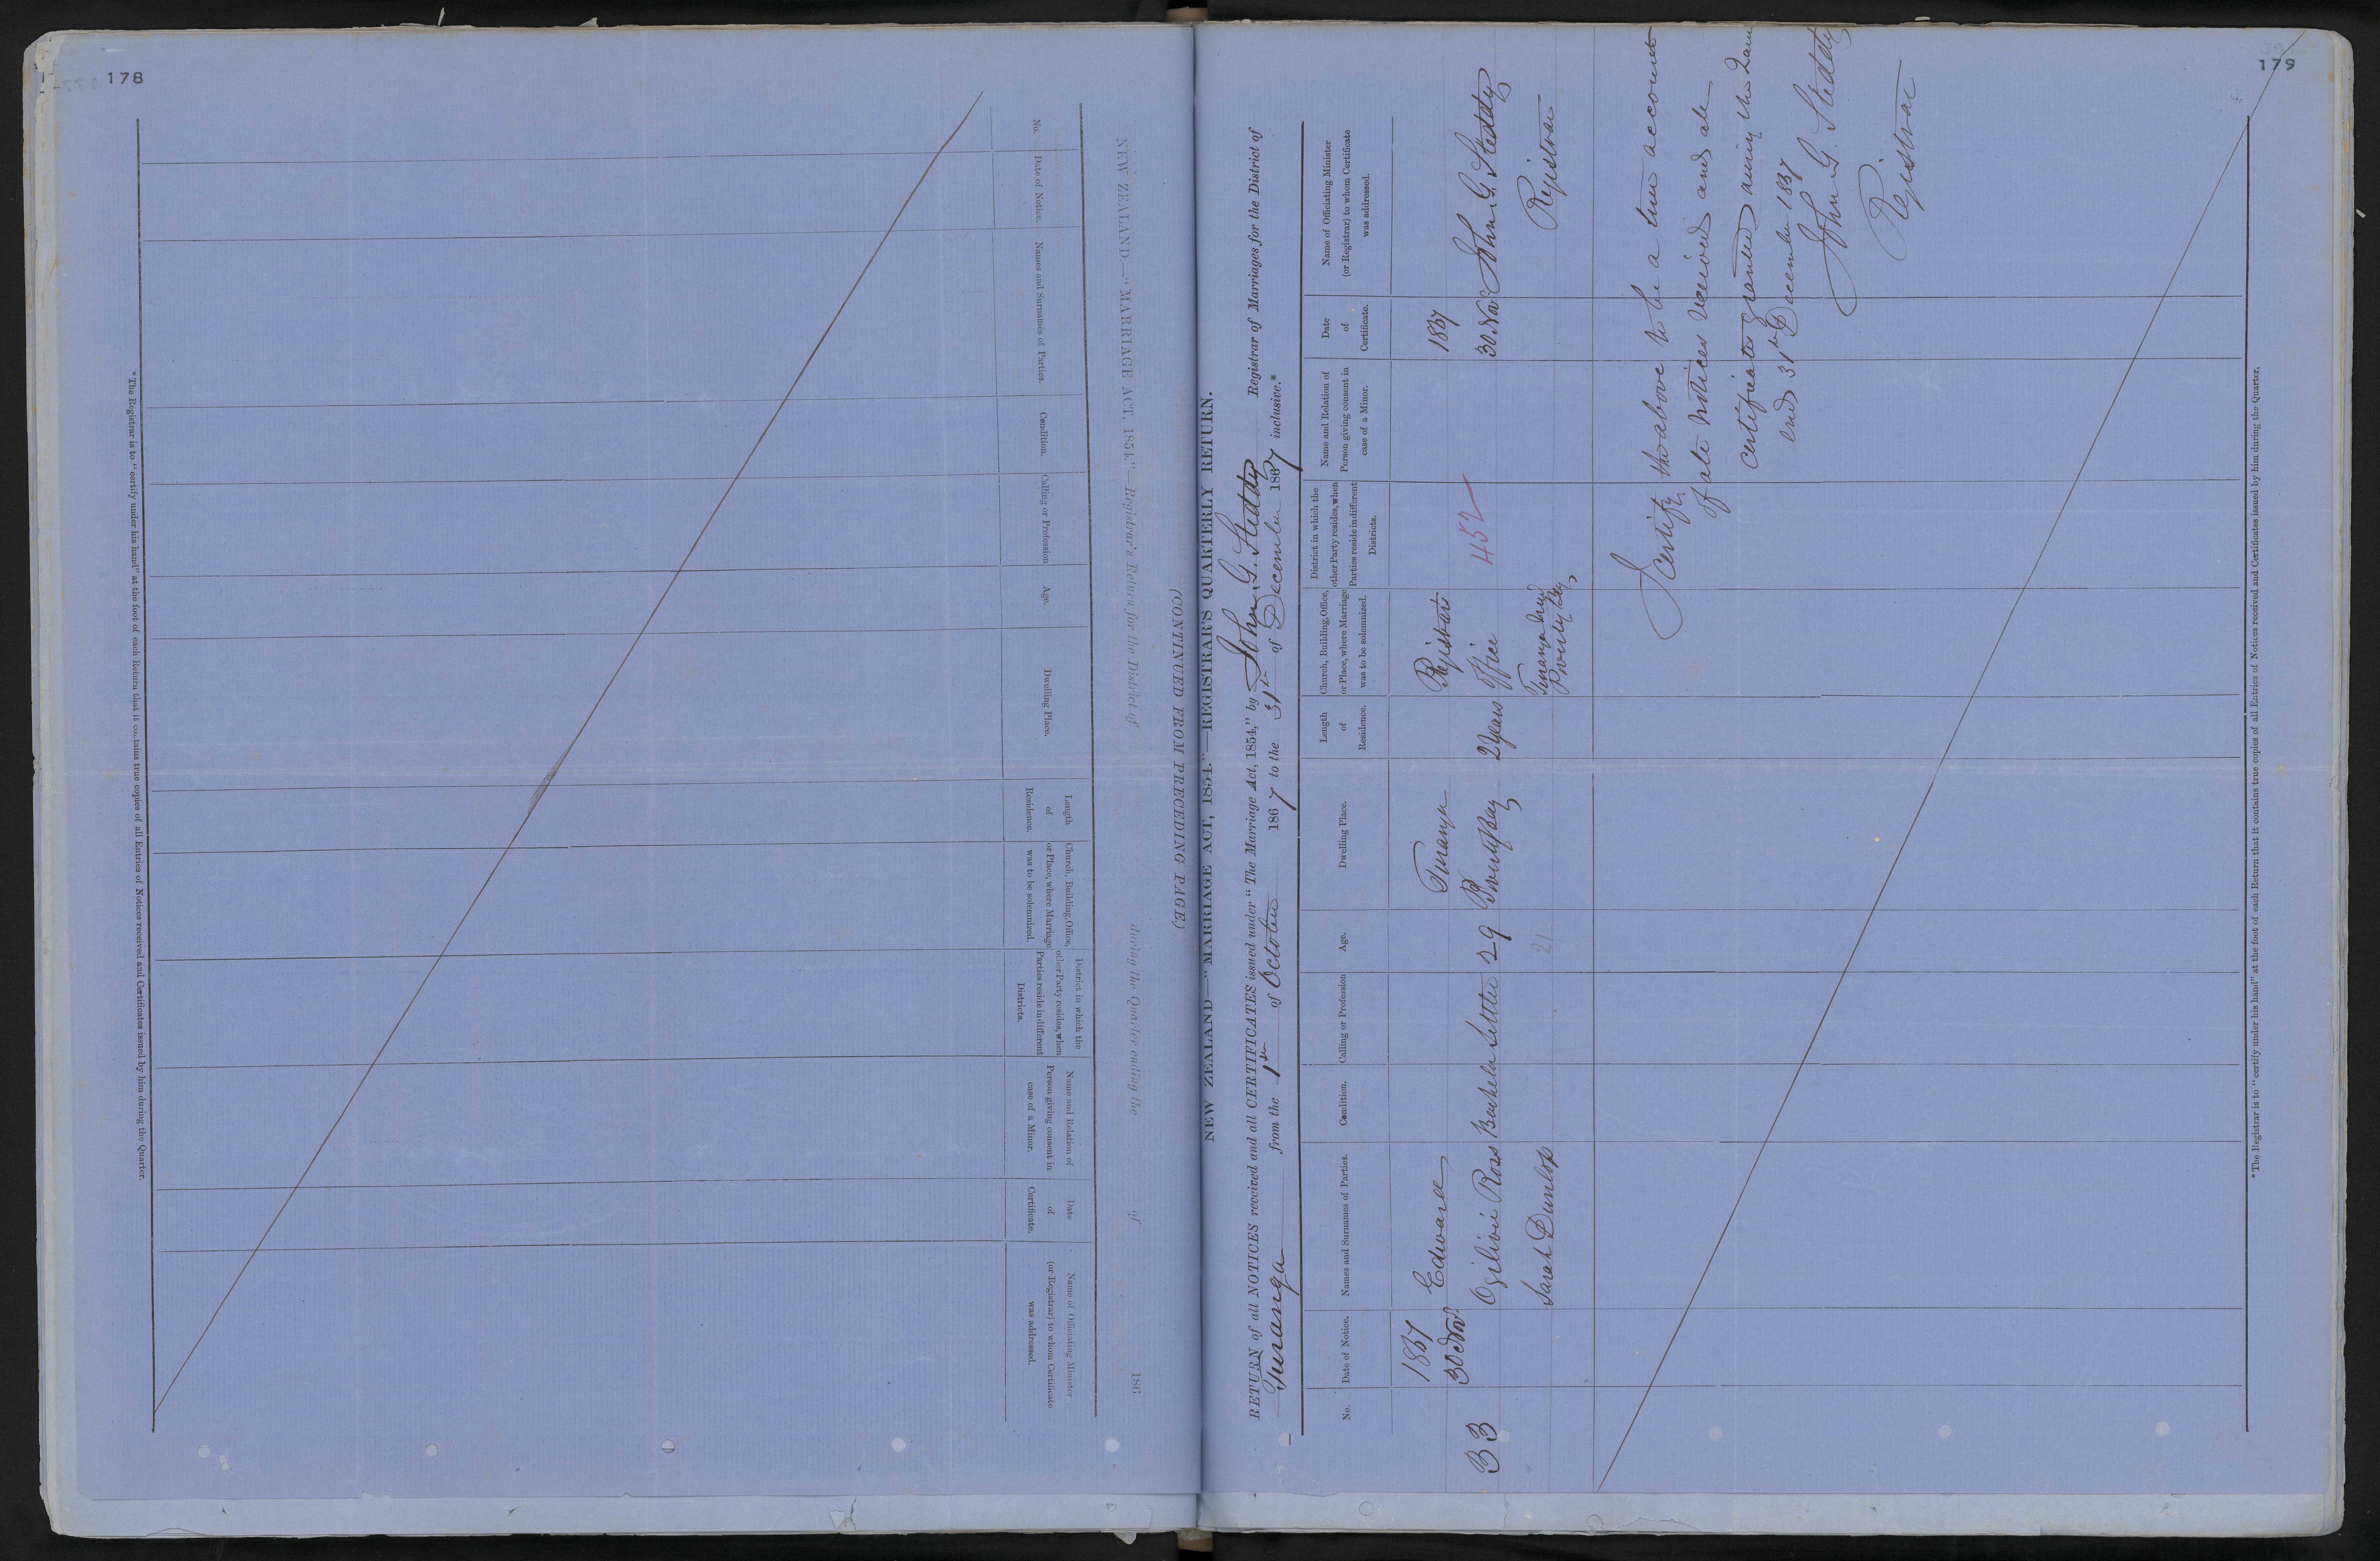 178
NEW ZEALAND.—"MARRIAGE ACT, 1854."—Registrar's Return for the District of during the Quarter ending the of 186
(CONTINUED FROM PRECEDING PAGE.)
No.
Date of Notice.
Names and Surnames of Parties.
Condition.
Calling or Profession
Age.
Dwelling Place.
Length
of
Residence.
Church, Building, Office,
or Place, where Marriage
was to be solemnized.
District in which the
other Party resides, when
Parties reside in different
Districts.
Name and Relation of
Person giving consent in
case of a Minor.
Date
of
Certificate.
Name of Officiating Minister
(or Registrar) to whom Certificate
was addressed.
*The Registrar is to "certify under his hand" at the foot of each Return that it contains true copies of all Entries of Notices received and Certificates issued by him during the Quarter.
179
NEW ZEALAND—"MARRIAGE ACT, 1854."—REGISTRAR'S QUARTERLY RETURN.
RETURN of all NOTICES received and all CERTIFICATES issued under "The Marriage Act, 1854," by John G. Steddy Registrar of Marriages for the District of
Turanga from the 1st of October 1867 to the 31st of December 1867 inclusive.*
No.
Date of Notice.
Names and Surnames of Parties.
Condition.
Calling or Profession
Age.
Dwelling Place.
Length
of
Residence.
Church, Building, Office,
or Place, where Marriage
was to be solemnized.
District in which the
other Party resides, when
Parties reside in different
Districts.
Name and Relation of
Person giving consent in
case of a Minor.
Date
of
Certificate.
Name of Officiating Minister
(or Registrar) to whom Certificate
was addressed.
1867 Edward Turanga Registrars 1867
33 30 Nov. Ogilivie Ross Bachelor Settler 29 Poverty Bay 2 years Office 452 30 Nov. John G. Steddy
Sarah Dunlop 21 Turanga Poverty Bay Registrar
I certify the above to be a true account
of all notices received and all
certificates granted during the Quarter
end 31st December 1867
John G. Steddy
Registrar
*The Registrar is to "certify under his hand" at the foot of each Return that it contains true copies of all Entries of Notices received and Certificates issued by him during the Quarter.